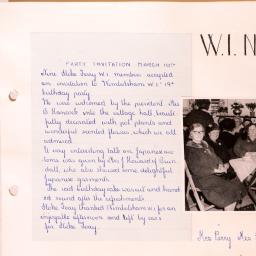 PARTY INVITATION MARCH 10TH
Nine Stoke Ferry W.I. members accepted
an invitation to Wimbotsham W.I.'s 19th
birthday party.
We were welcomed by the president Mrs
B Hancock into the village hall, beauti-
fully decorated with pot plants and
wonderful scented flowers, which we all
admired.
A very interesting talk on Japanese cus-
toms was given by Mrs J Howard of
who also showed some delightful
Japanese garments.
The iced birthday cake was cut and hand-
ed round after the refreshments.
Stoke Ferry thanked Wimbotsham W.I. for an
enjoyable afternoon and left by cars
for Stoke Ferry.
W.I. N
Mrs Perry Mrs